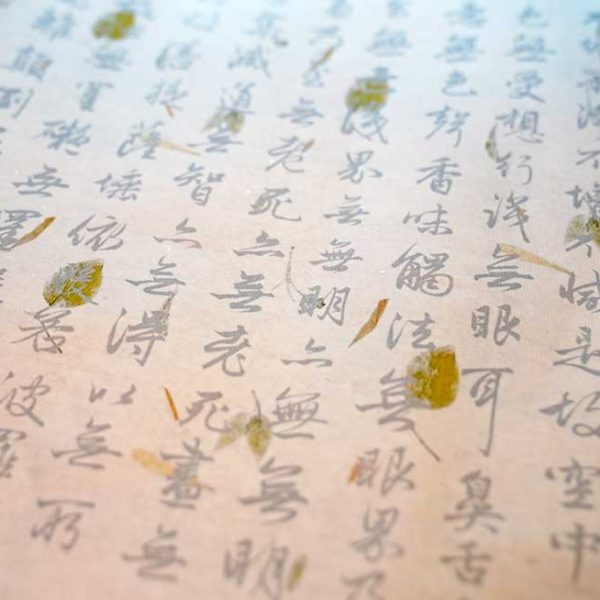 不增不減是故空中
色無受想行識無眼耳鼻舌
無色聲香味觸法無眼界乃
無意識界無無明亦無無明
乃至無老死亦無老死盡無
集滅道無智亦無得以無所
提薩埵依般若波羅
無罣礙無罣
離顛倒